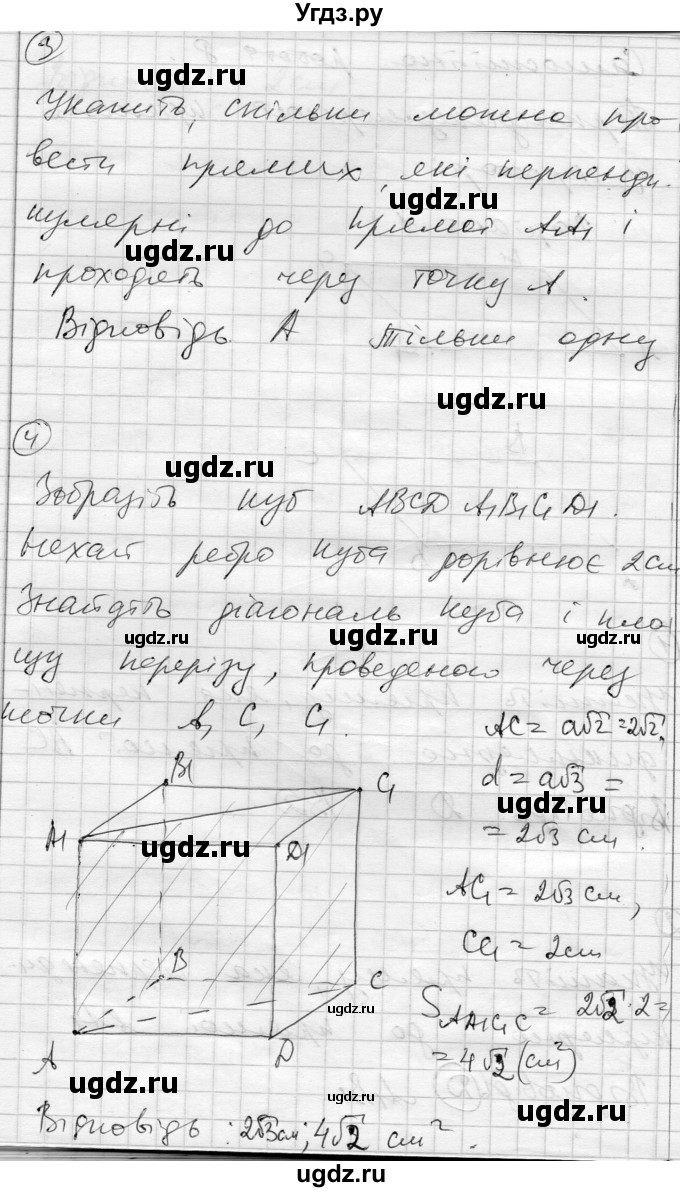 Угдз.ру
3
ugdz.ru
Укажить, скільки можна про
вести прямих, які перпенди
ugdz.ru
кулярні до прямої AA1 і
ugdz.ru
проходять через точку A.
Відповідь A тільки одну
ugdz.ru
4
ugdz.ru
Зобразіть куб ABCD A1B1C1D1.
Нехай ребро куба дорівнює 2см
Знайдіть діагональ куба і пло
ugdz.ru ugdz.ru ugdz.ru
щу перерізу, проведеного через
точки A, C, C1.
AC = a√2 = 2√2,
d = a√3 =
ugdz.ru
= 2√3 см.
AC1 = 2√3 см,
CC1 = 2см
S AA1C1C = 2√2 · 2 =
= 4√2 (см²)
B1
C1
A1
D1
ugdz.ru
B
C
ugdz.ru
A
D
ugdz.ru
ugdz.ru
Відповідь: 2√3см; 4√2 см².
ugdz.ru
ugdz.ru